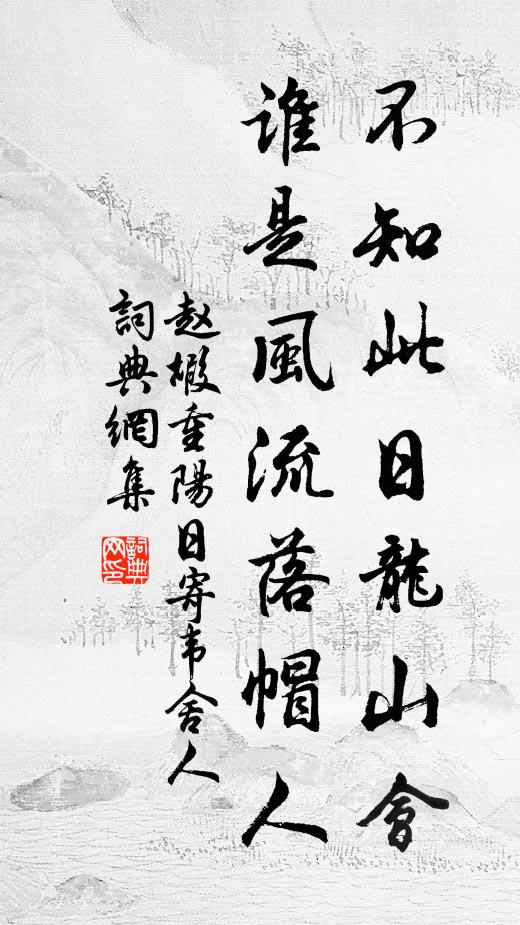 不知此日龍山會
誰是風流落帽人
赵嘏重陽日寄韦舍人
詞典網集
詞典網印